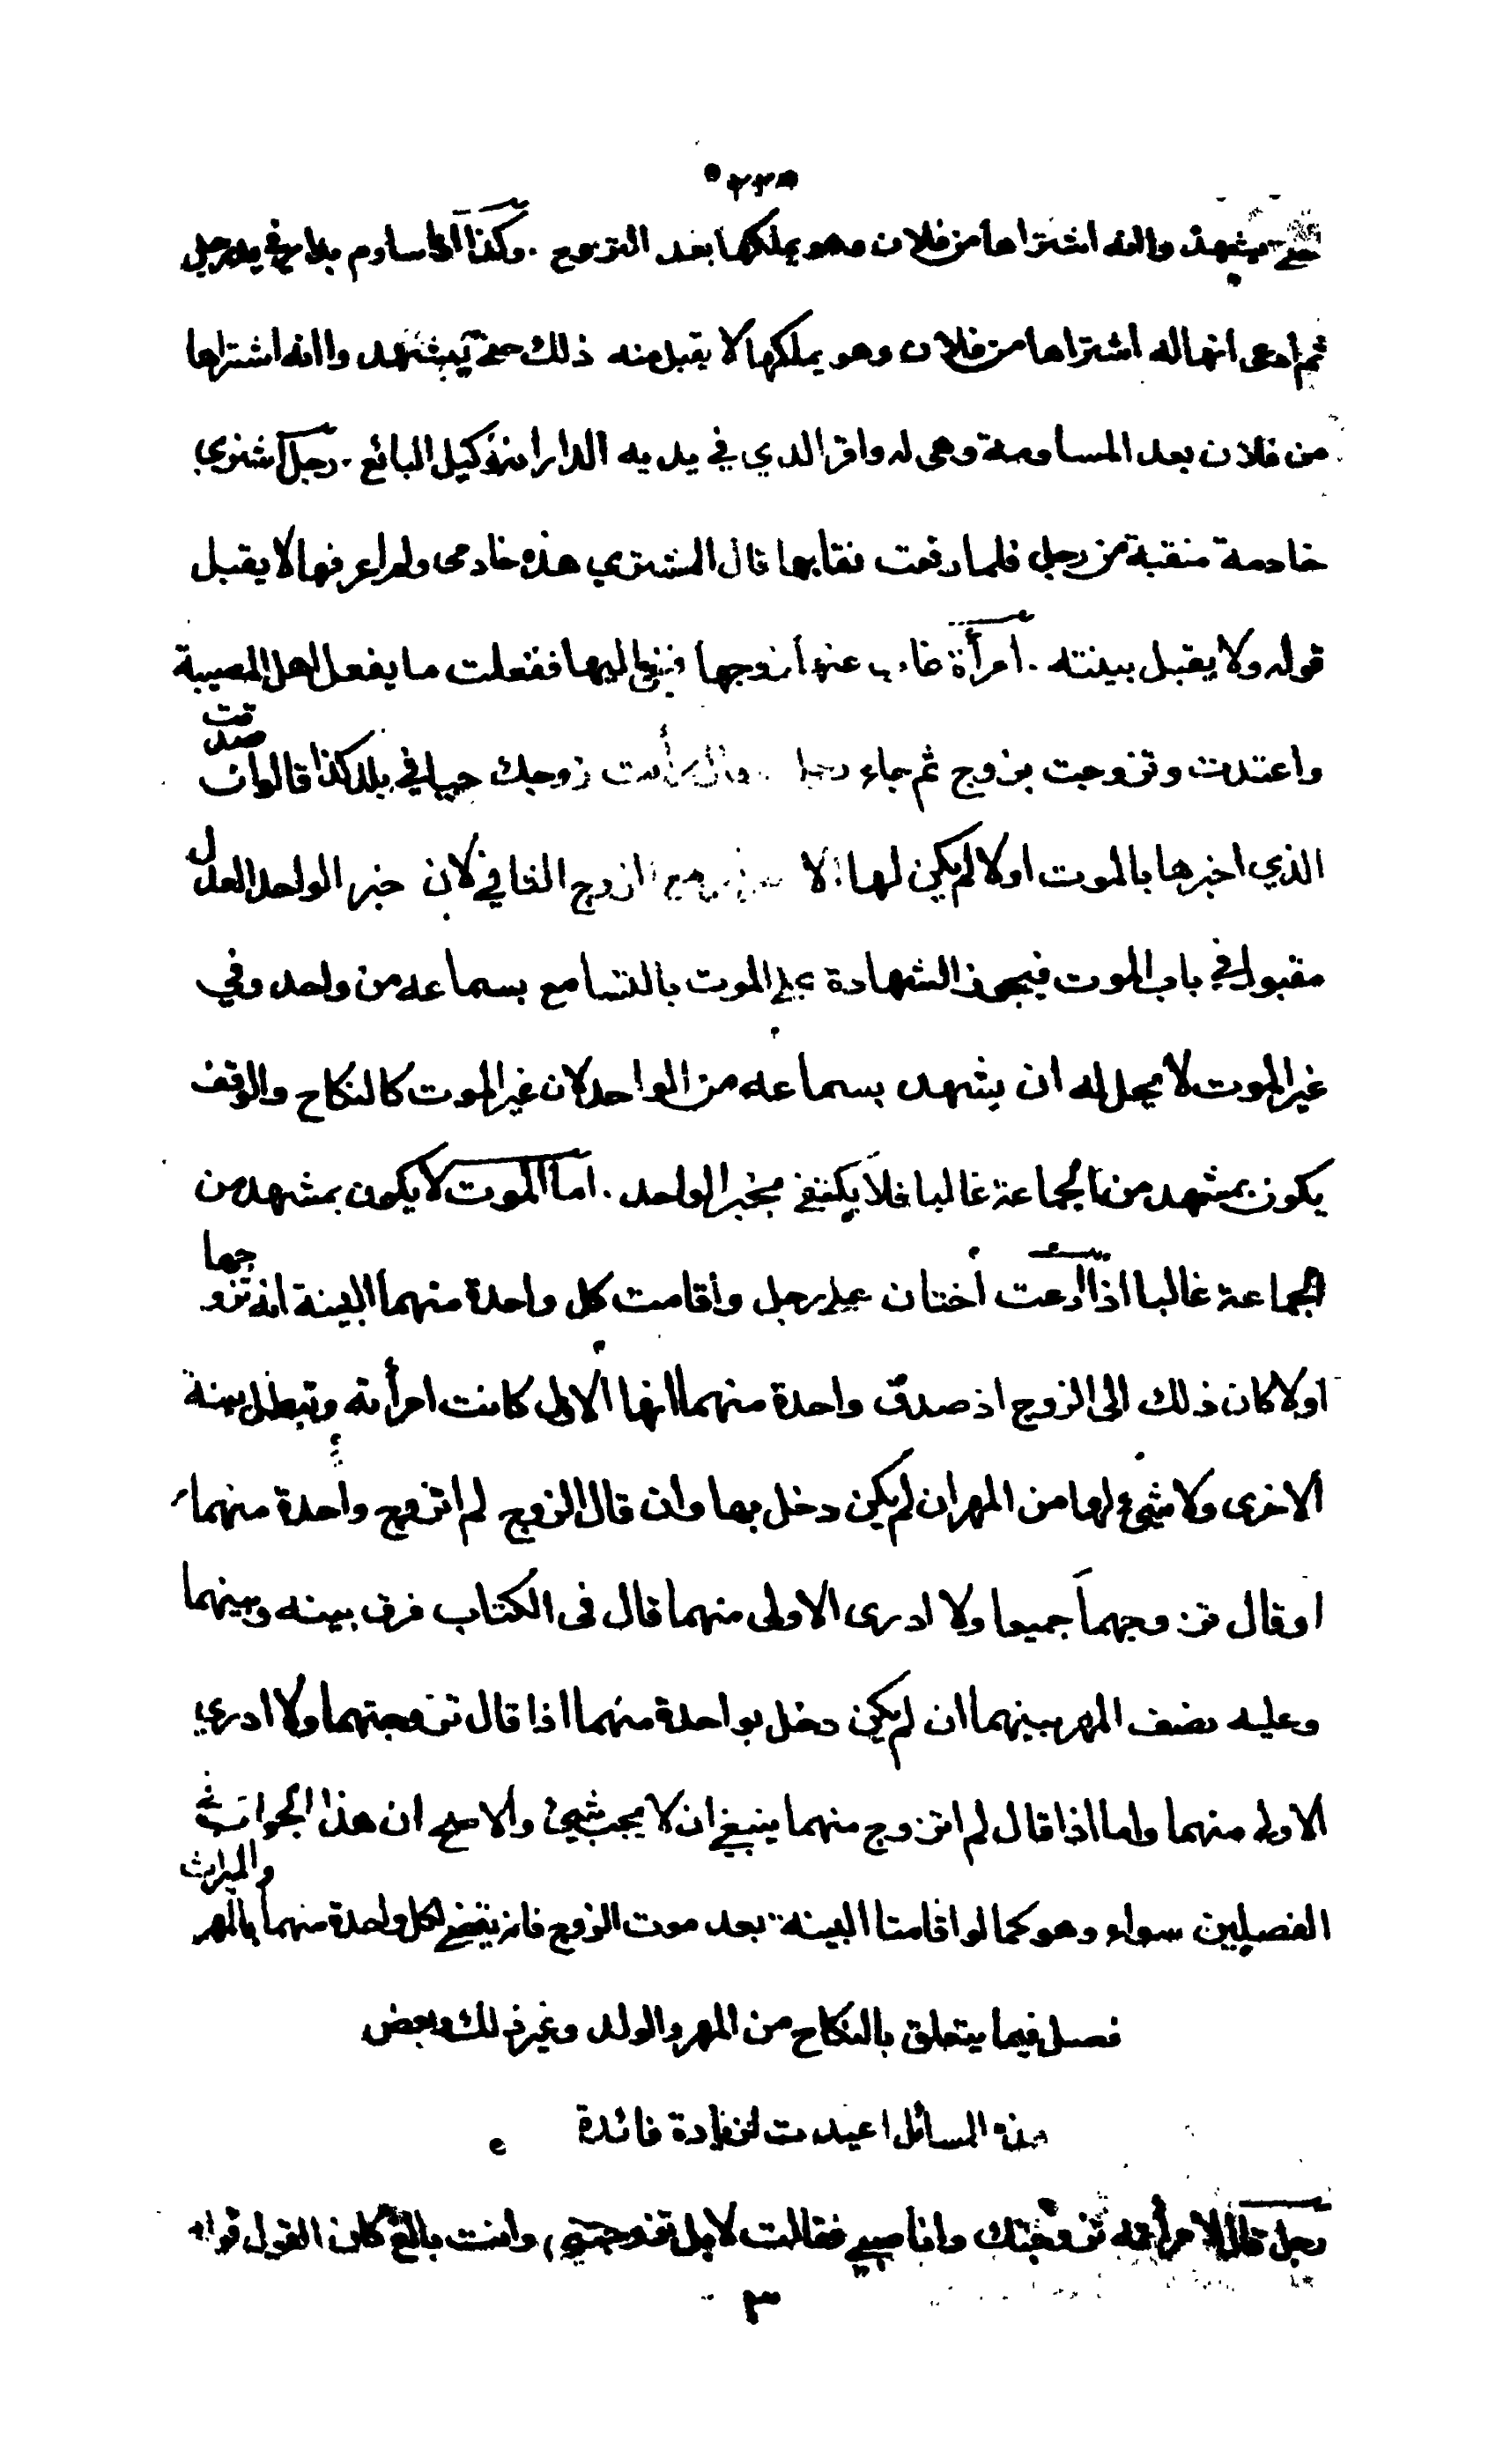 ٢٢٥
حتى يشهدوا انه اشتراها من فلان وهو يملكها بعد التزوج . وكذا اذا ساوم بدار في يد رجل
ثم ادعى انها له اشتراها من فلان وهو يملكها لا يقبل منه ذلك حتى يشهدوا انه اشتراها
من فلان بعد المساومة وهى له واقر الذي في يديه الدار انه وكيل البائع . رجل اشترى
خادمة منقبة من رجل فلما رفعت نقابها قال المشتري هذه خادمى ولم اعرفها لا يقبل
قوله ولا يقبل بينته . امرأة غاب عنها زوجها فنعي اليها ففعلت ما يفعل اهل المصيبة
واعتدت وتزوجت بزوج ثم جاء رجل وقال رأيت زوجك حيا في بلد كذا قالوا ان صدقت
الذي اخبرها بالموت اولا لم يكن لها ان لا مع الزوج الثاني لان خبر الواحد العدل
مقبول في باب الموت فيجوز الشهادة على الموت بالتسامع بسماعه من واحد وفي
غير الموت لا يحل له ان يشهد بسماعه من الواحد لان غير الموت كالنكاح والوقف
يكون بمشهد من الجماعة غالبا فلا يكتفى بخبر الواحد . اما الموت لا يكون بمشهد من
الجماعة غالبا اذا ادعت اختان على رجل واقامت كل واحدة منهما البينة انه تزوجها
اولا كان ذلك الى الزوج اذ صدق واحدة منهما انها الاولى كانت امرأته وتبطل بينة
الاخرى ولا شيء لها من المهر ان لم يكن دخل بها وان قال الزوج لم اتزوج واحدة منهما
او قال تزوجهما جميعا ولا ادرى الاولى منهما قال فى الكتاب فرق بينه وبينهما
وعليه نصف المهر بينهما ان لم يكن دخل بواحدة منهما اذا قال تزوجتهما ولا ادري
الاولى منهما واما اذا قال لم اتزوج منهما ينبغي ان لا يجب شيئ والاصح ان هذا الجواب في
الفصلين سواء وهو كما لو اقامتا البينة بعد موت الزوج فانه يقضى لكل واحدة منهما بالمهر والميراث
فصل فيما يتعلق بالنكاح من المهر والولد وغير ذلك وبعض
هذه المسائل اعيدت لزيادة فائدة
رجل قال لامرأته تزوجتك وانا صبي فقالت لا بل تزوجتني وانت بالغ كان القول قوله
٣